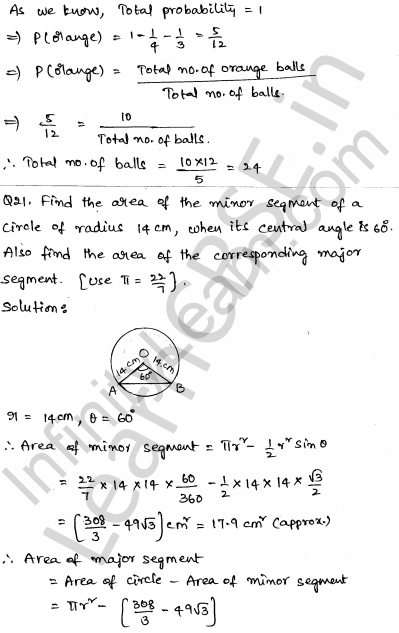 As we know, Total probability = 1
⇒ P(Orange) = 1 - 1/4 - 1/3 = 5/12
⇒ P(Orange) = Total no. of orange balls / Total no. of balls.
⇒ 5/12 = 10 / Total no. of balls.
∴ Total no. of balls = 10×12 / 5 = 24
Q21. Find the area of the minor segment of a
circle of radius 14 cm, when its central angle is 60°.
Also find the area of the corresponding major
segment. [Use π = 22/7].
Solution:
O
14 cm 14 cm
60°
A B
r = 14cm, θ = 60°
∴ Area of minor segment = πr² - 1/2 r² sin θ
= 22/7 × 14 × 14 × 60/360 - 1/2 × 14 × 14 × √3/2
= [308/3 - 49√3] cm² = 17.9 cm² (approx.)
∴ Area of major segment
= Area of circle - Area of minor segment
= πr² - [308/3 - 49√3]
Infinity Learn.com
LearnCBSE.in